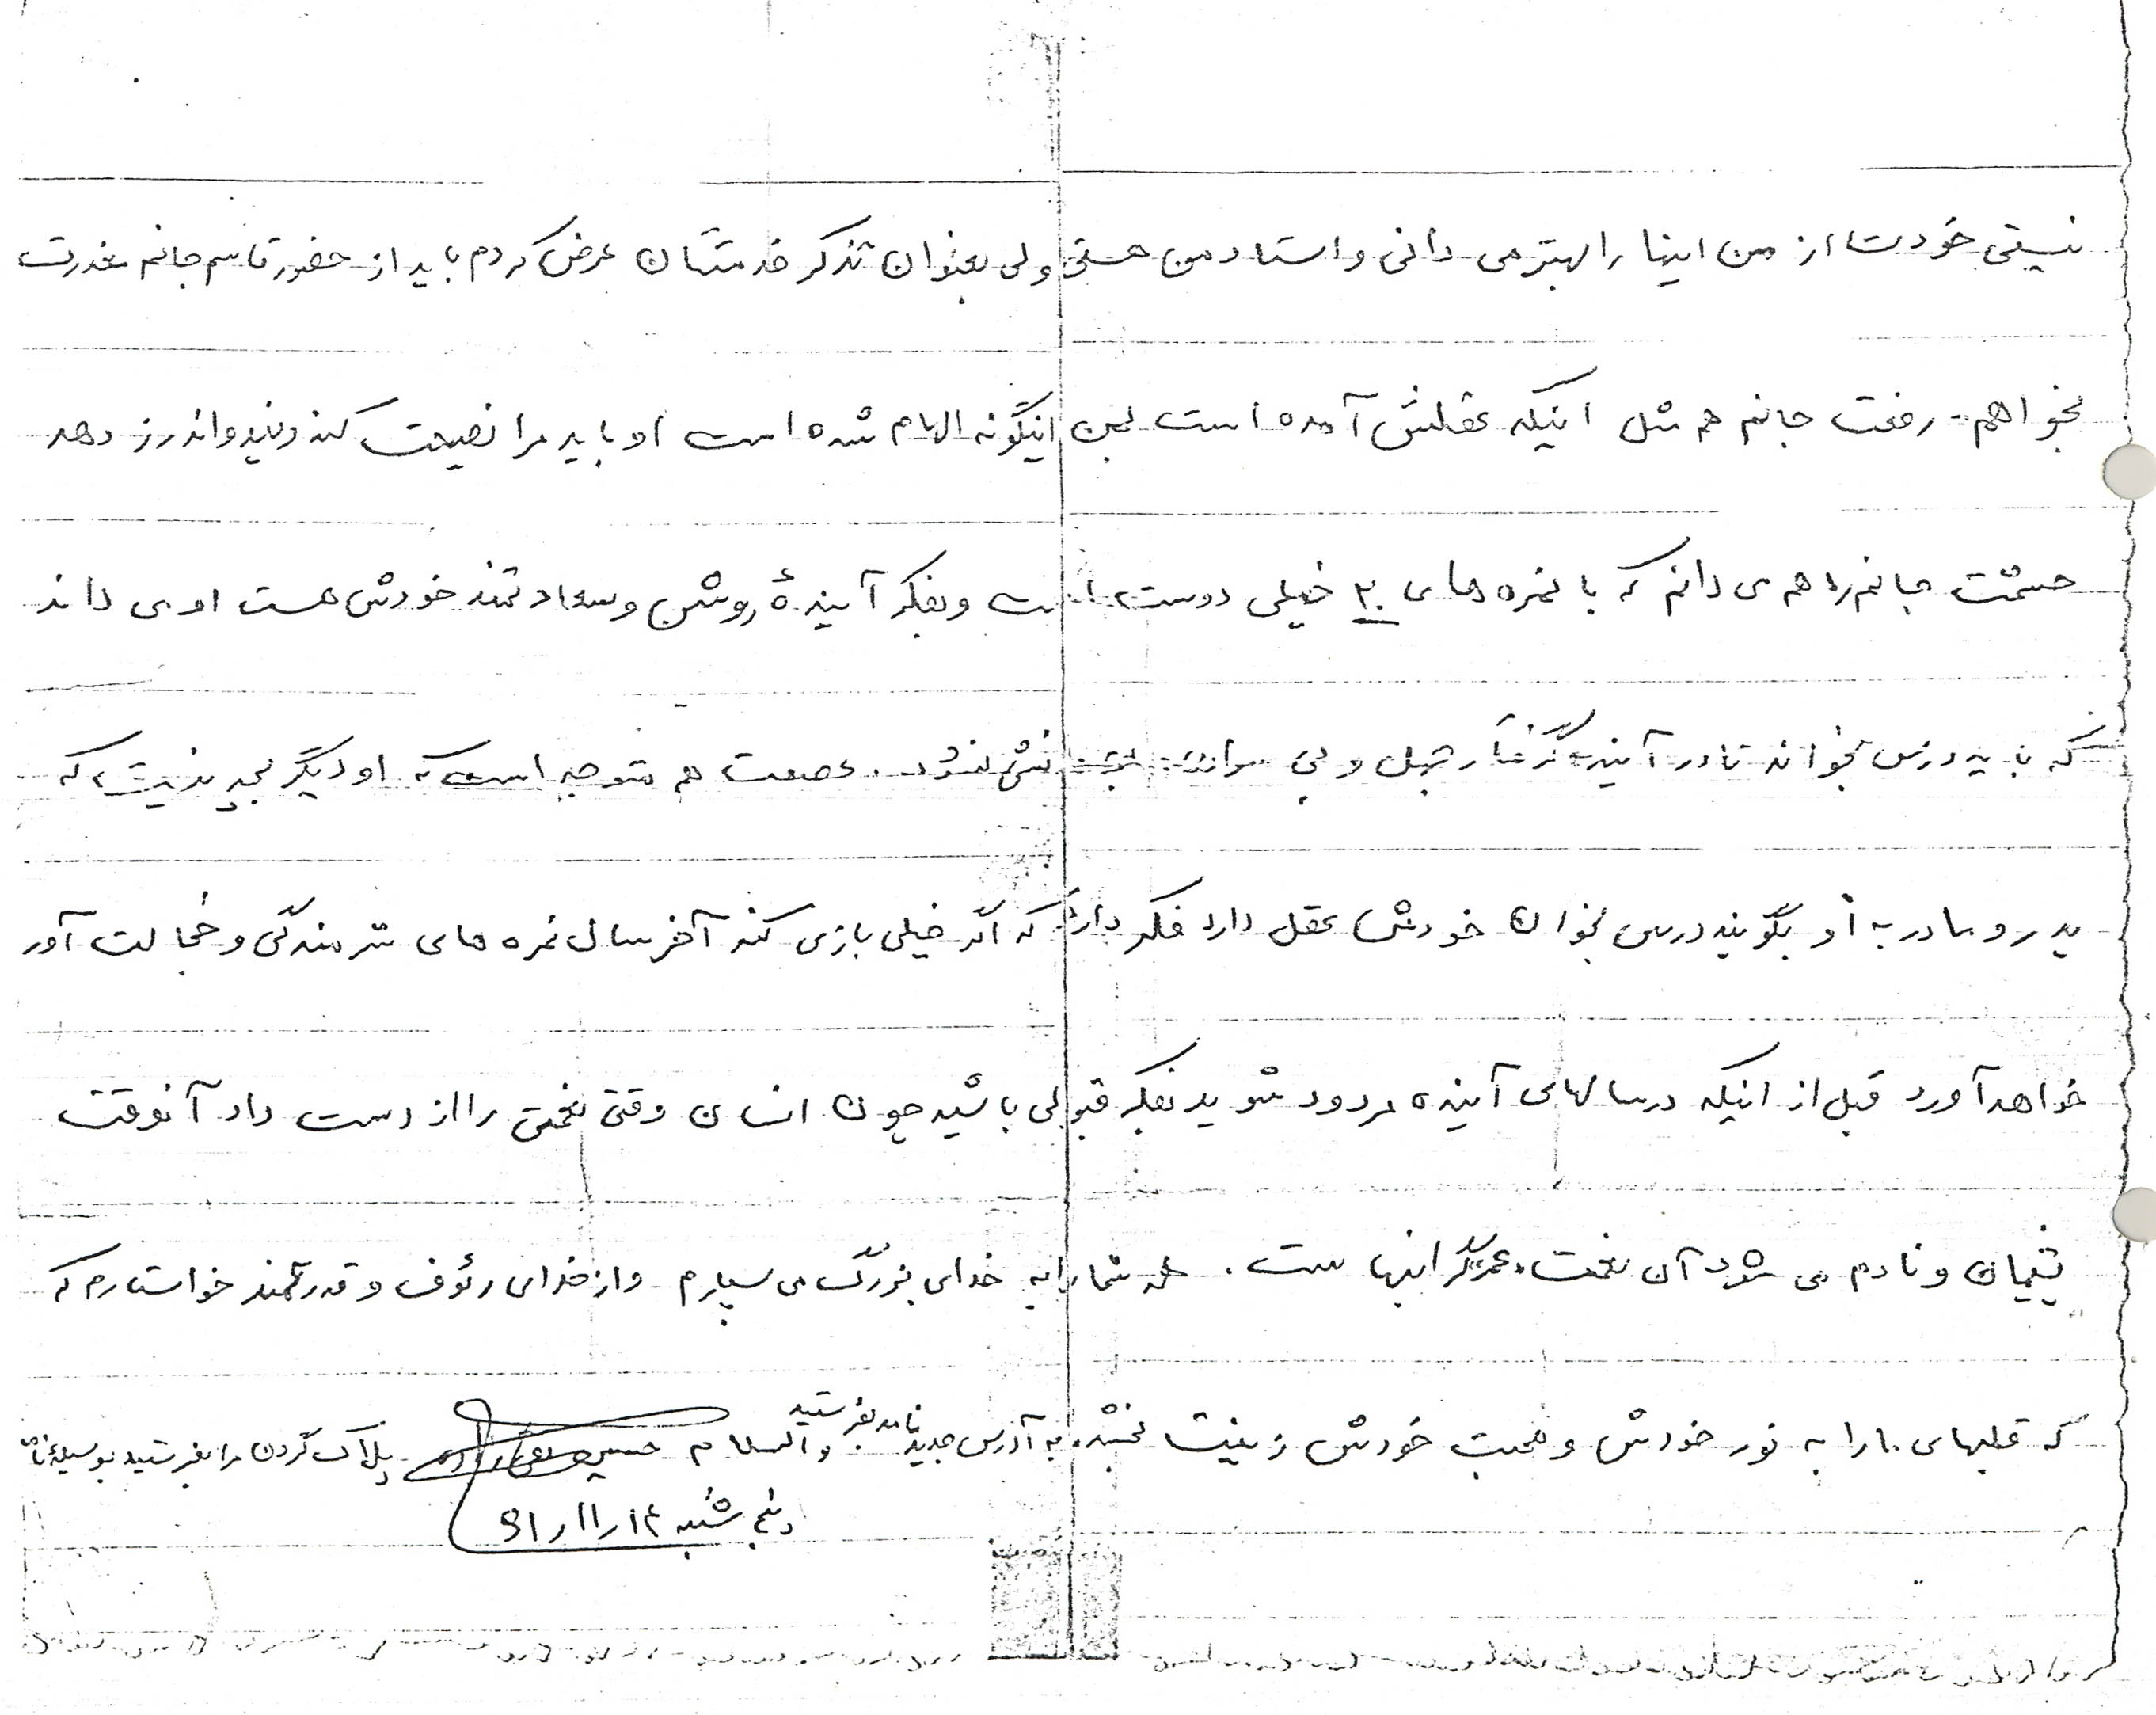 نیستی خودت از من اینها را بهتر می دانی و استاد من هستی ولی بعنوان تذکر خدمتتان عرض کردم باید از حضور قاسم جانم معذرت
بخواهم. رفعت جانم هم مثل اینکه عقلش آمده است بمن اینگونه الهام شده است او باید مرا نصیحت کند و پند و اندرز دهد
حشمت جانم را هم می دانم که با نمره های ۲۰ خیلی دوست است و بفکر آیندهٔ روشن و سعادتمند خودش هست او می داند
که باید درس بخواند تا در آینده گرفتار جهل و بی نشود. عصمت هم متوجه است که او دیگر بچه نیست که
پدر و مادر به او بگویند درس بخوان خودش عقل دارد فکر دارد که اگر خیلی بازی کند آخر سال نمره های شرمندگی و خجالت آور
خواهد آورد قبل از اینکه در سالهای آینده مردود شوید بفکر قبولی باشید چون انسان وقتی نعمتی را از دست داد آنوقت
پشیمان و نادم می شود آن نعمت عمر گرانبهاست. همه شما را به خدای بزرگ می سپارم و از خدای رئوف و قدرتمند خواستارم که
که قلبهای ما را به نور خودش و محبت خودش زینت بخشد. به آدرس جدید نامه بفرستید والسلام حسین پلاک گردن مرا بفرستید بوسیله
پنج شنبه ۶۱/۱۱/۱۴